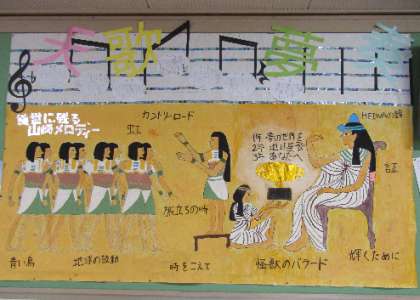 大歌夢
後世に残る
山崎メロディー
カントリーロード
虹
HEIWAの鐘
1年 夢の世界を
3年 あなたへ
証
旅立ちの時
青い鳥
地球の鼓動
時をこえて
怪獣のバラード
輝くために